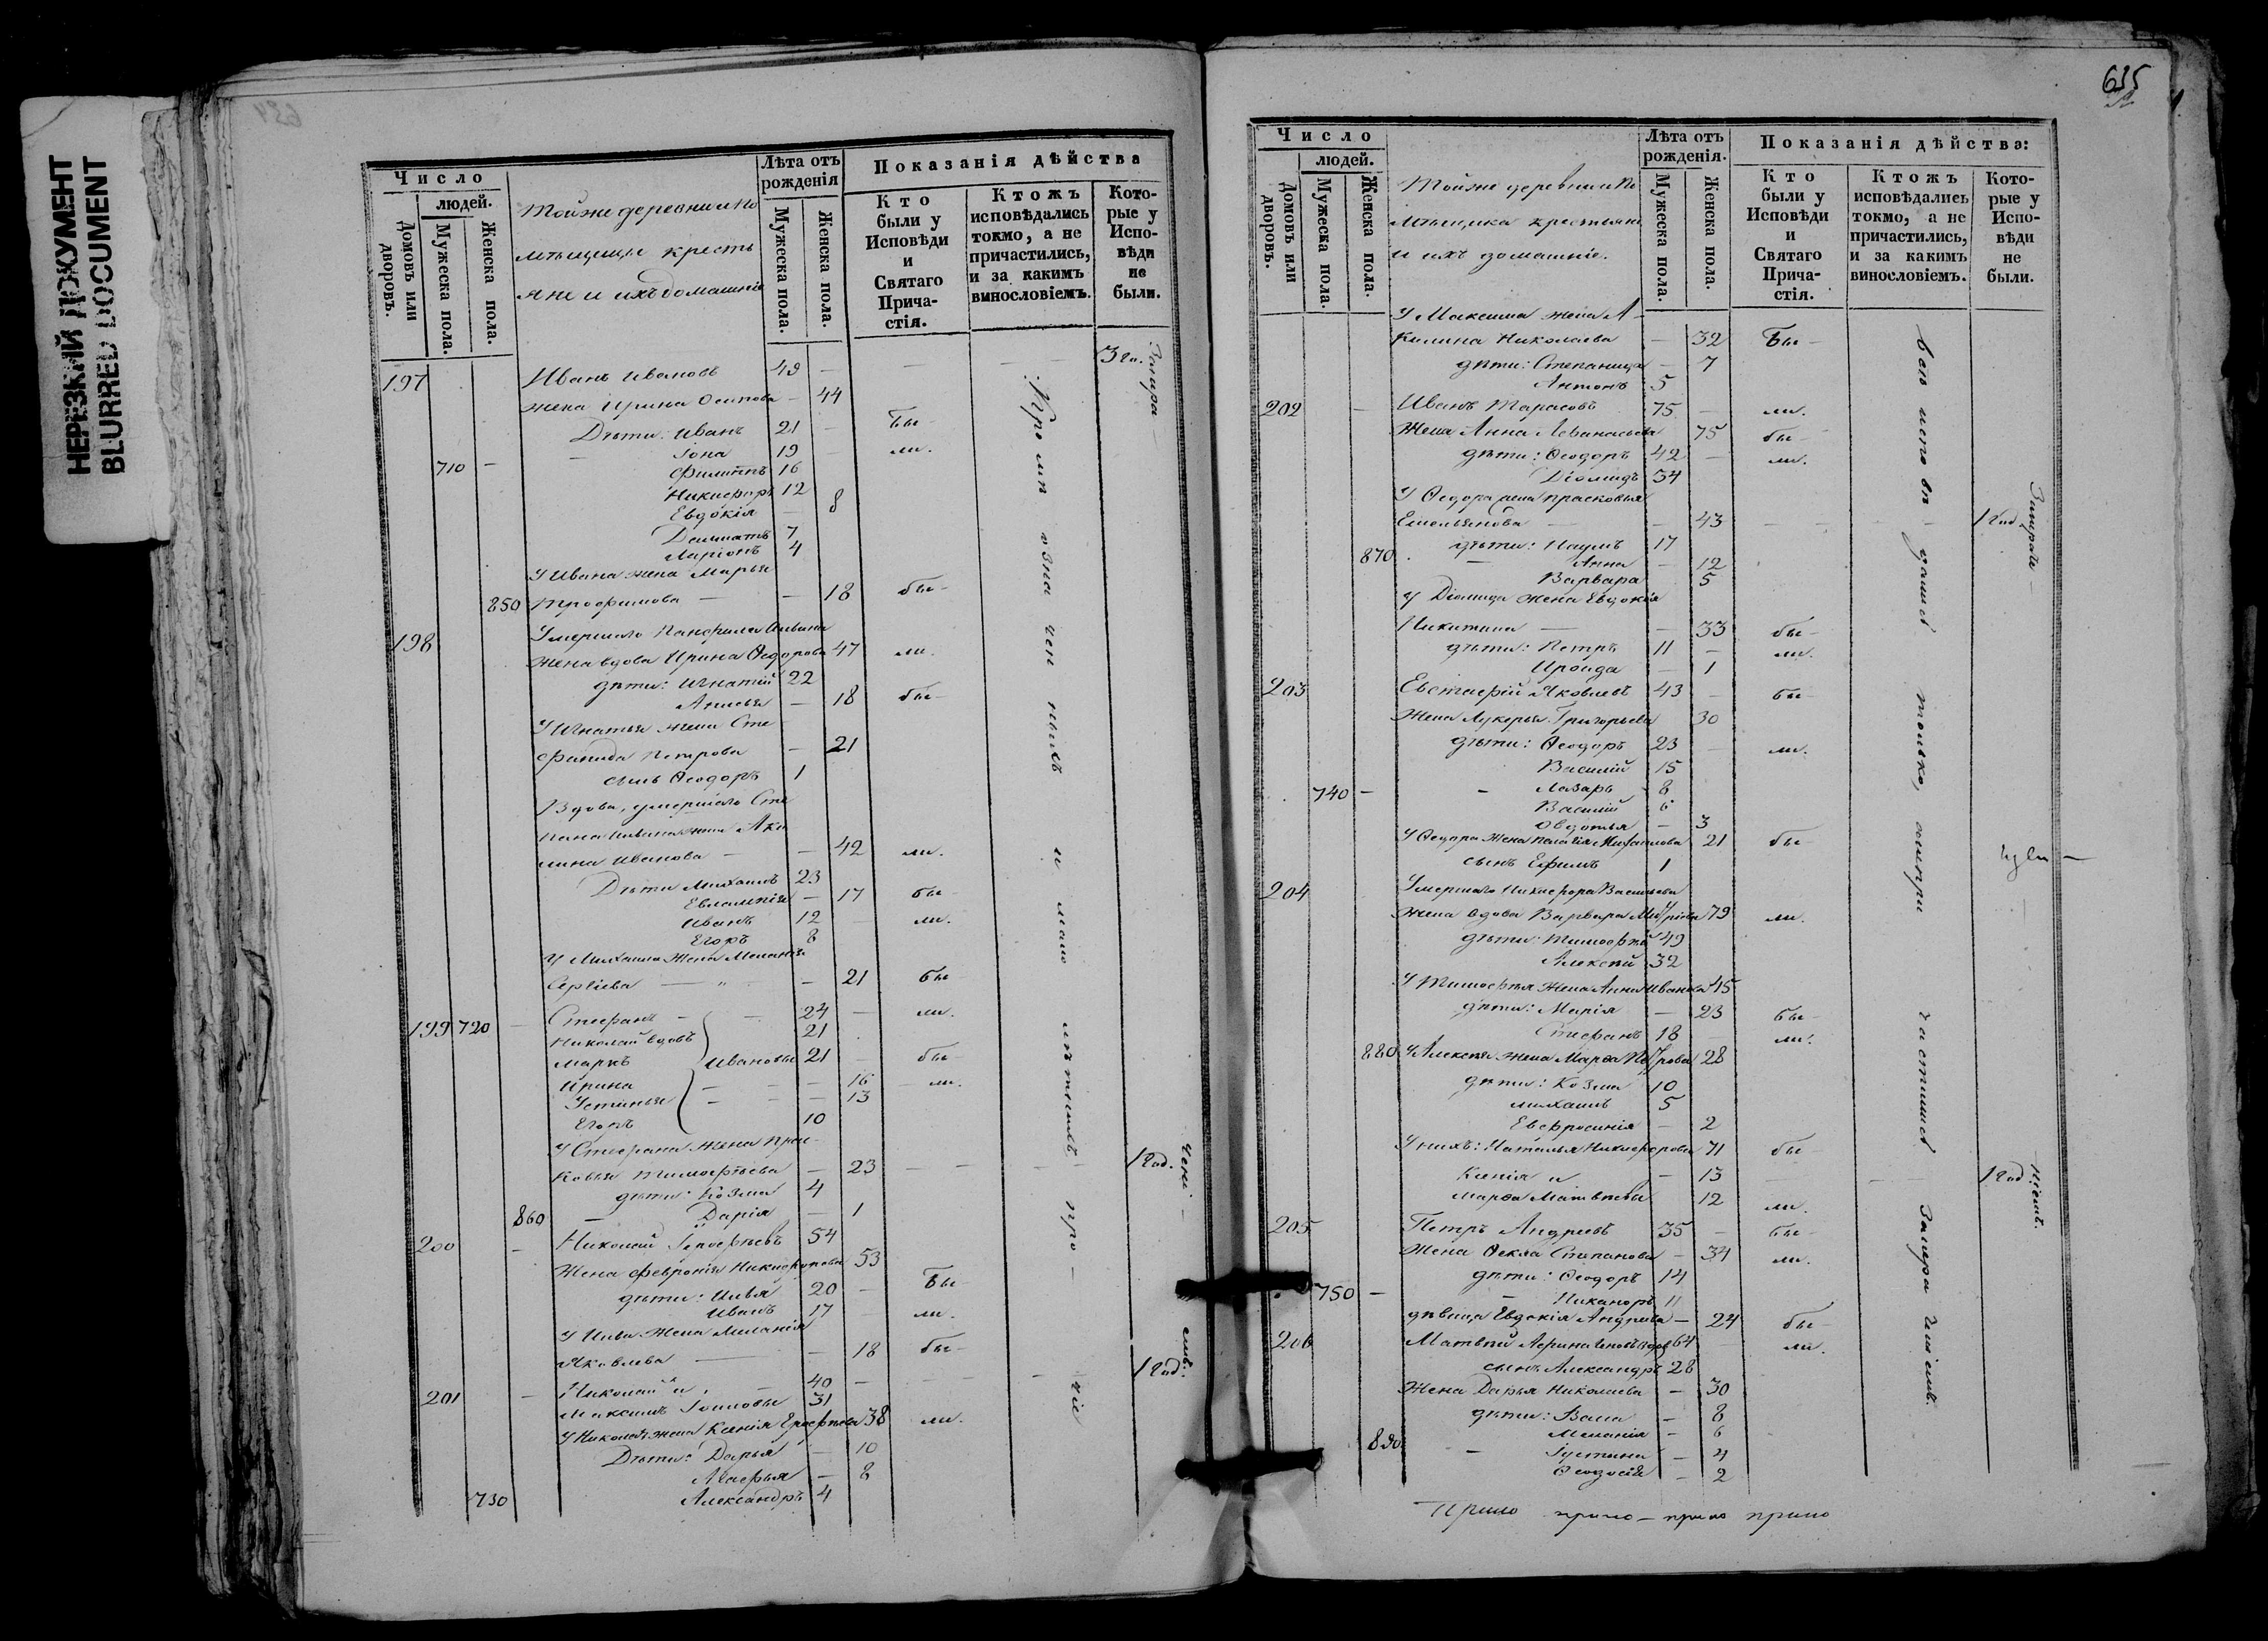 НЕРЕЗКИЙ ДОКУМЕНТ
BLURRED DOCUMENT
634
Число
людей.
Домовъ или дворовъ.
Мужеска пола.
Женска пола.
Тойже деревни и по
мѣщицы кресть
яне и ихъ домашніе
Лѣта отъ рожденія
Мужеска пола.
Женска пола.
Показанія дѣйства
Кто были у Исповѣди и Святаго Прича-стія.
Ктожъ исповѣдались токмо, а не причастились, и за какимъ винословіемъ.
Кото-рые у Испо-вѣди не были.
197 Иванъ Ивановъ 49 — 3 го.
жена Ирина Осипова — 44
Дѣти: Иванъ 21 — Бы-
Іона 19 — ли.
710 — Филиппъ 16
Никифоръ 12
Евдокія — 8
Далматъ 7
Ларіонъ 4
У Ивана жена Марья
850 Трофимова — — 18 бы-
198 Умершаго Панфила
жена вдова Ирина Ѳедорова 47 ли.
дѣти: Игнатій 22
Анисья — 18 бы-
У Игнатья жена Сте
фанида Петрова — 21
сынъ Ѳеодоръ 1
Вдова, умершаго Сте
пана жена Аки
лина Иванова — — 42 ли.
Дѣти Михаилъ 23
Евлампія — 17 бы-
Иванъ 12 — ли.
Егоръ 8
У Михаила жена Меланія
Сергіева — " — 21 бы
199 720 — Стефанъ — 24 — ли.
Николай вдовъ 21
Маркъ Ивановы 21 — бы-
Ирина — — — 16 — ли.
Устинья — — — 13
Егоръ 10
У Стефана жена Прас
ковья Тимофѣева — 23 — — — 1 год.
дѣти: Козма 4
860 — Дарія — 1
200 — Николай Іерофѣевъ 54
Жена Февронія Никифорова 53
дѣти: Илья 20 — Бы-
Иванъ 17 — ли.
У Ильи жена Меланія
Яковлева — — 18 бы-
201 — Николай и — 40 — — — 1 год.
Максимъ 31
У Николая жена Ксенія Ерофѣева 38 ли.
Дѣти: Дарья — 10
Агафья — 8
730 Александръ 4
Кромѣ означенныхъ и мало лѣтныхъ прочіе
635
Число
людей.
Домовъ или дворовъ.
Мужеска пола.
Женска пола.
Тойже деревни и по
мѣщика крестьяне
и ихъ домашніе.
Лѣта отъ рожденія.
Мужеска пола.
Женска пола.
Показанія дѣйства:
Кто были у Исповѣди и Святаго Прича-стія.
Ктожъ исповѣдались токмо, а не причастились, и за какимъ винословіемъ.
Кото-рые у Испо-вѣди не были.
У Максима жена А
килина Николаева — 32 Бы-
дѣти: Степанида — 7
Антонъ 5
202 — Иванъ Тарасовъ 75 — ли.
Жена Анна Аѳанасьева 75 бы-
дѣти: Ѳеодоръ 42 — ли.
Діомидъ 34
У Ѳеодора жена Прасковья
Емельянова — — 43 — — 1 год
дѣти: Наумъ 17
870 — Анна — 12
Варвара 5
У Діомида жена Евдокія
Никитина — — 33 бы-
дѣти: Петръ 11 — ли.
Ироида — 1
203 Евстафій Яковлевъ 43 — бы-
Жена Лукерья Григорьева 30
дѣти: Ѳеодоръ 23 — ли.
Василій 15
740 — — Лазарь 8
Василій 6
Овдотья — 3
У Ѳеодора жена Пелагія Михаилова 21 бы-
сынъ Ефимъ 1
204 Умершаго Никифора Васильева
жена вдова Варвара 79 ли.
дѣти: Тимофей 49
Алексѣй 32
У Тимофея жена Анна Иванова 45
дѣти: Марія — 23 бы-
Стефанъ 18 ли.
880 У Алексѣя жена Марѳа Петрова 28
дѣти: Козма 10
Михаилъ 5
Евфросинія — 2
У нихъ: Наталья Никифорова 71 бы-
Ксенія и — 13 — — 1 год
Марѳа Матвѣевы 12 ли.
205 Петръ Андреевъ 35 — бы-
Жена Ѳекла Степанова — 34 ли.
дѣти: Ѳеодоръ 14
750 — — Никаноръ 11
дѣвица Евдокія Андреева — 24 бы-
206 Матвѣй вдов 64 — ли.
сынъ Александръ 28
Жена Дарья Николаева — 30
дѣти: — 8
Меланія — 6
890 — Іустина — 4
Ѳеодосія — 2